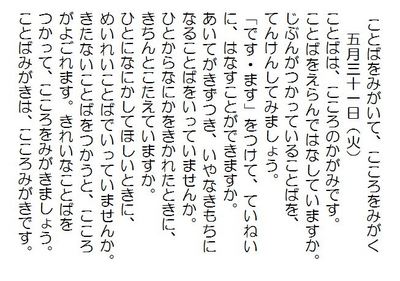 ことばをみがいて、こころをみがく
五月三十一日（火）
ことばは、こころのかがみです。
ことばをえらんではなしていますか。
じぶんがつかっていることばを、
てんけんしてみましょう。
「です・ます」をつけて、ていねい
に、はなすことができますか。
あいてがきずつき、いやなきもちに
なることばをいっていませんか。
ひとからなにかをきかれたときに、
きちんとこたえていますか。
ひとになにかしてほしいときに、
めいれいことばでいっていませんか。
きたないことばをつかうと、こころ
がよごれます。きれいなことばを
つかって、こころをみがきましょう。
ことばみがきは、こころみがきです。